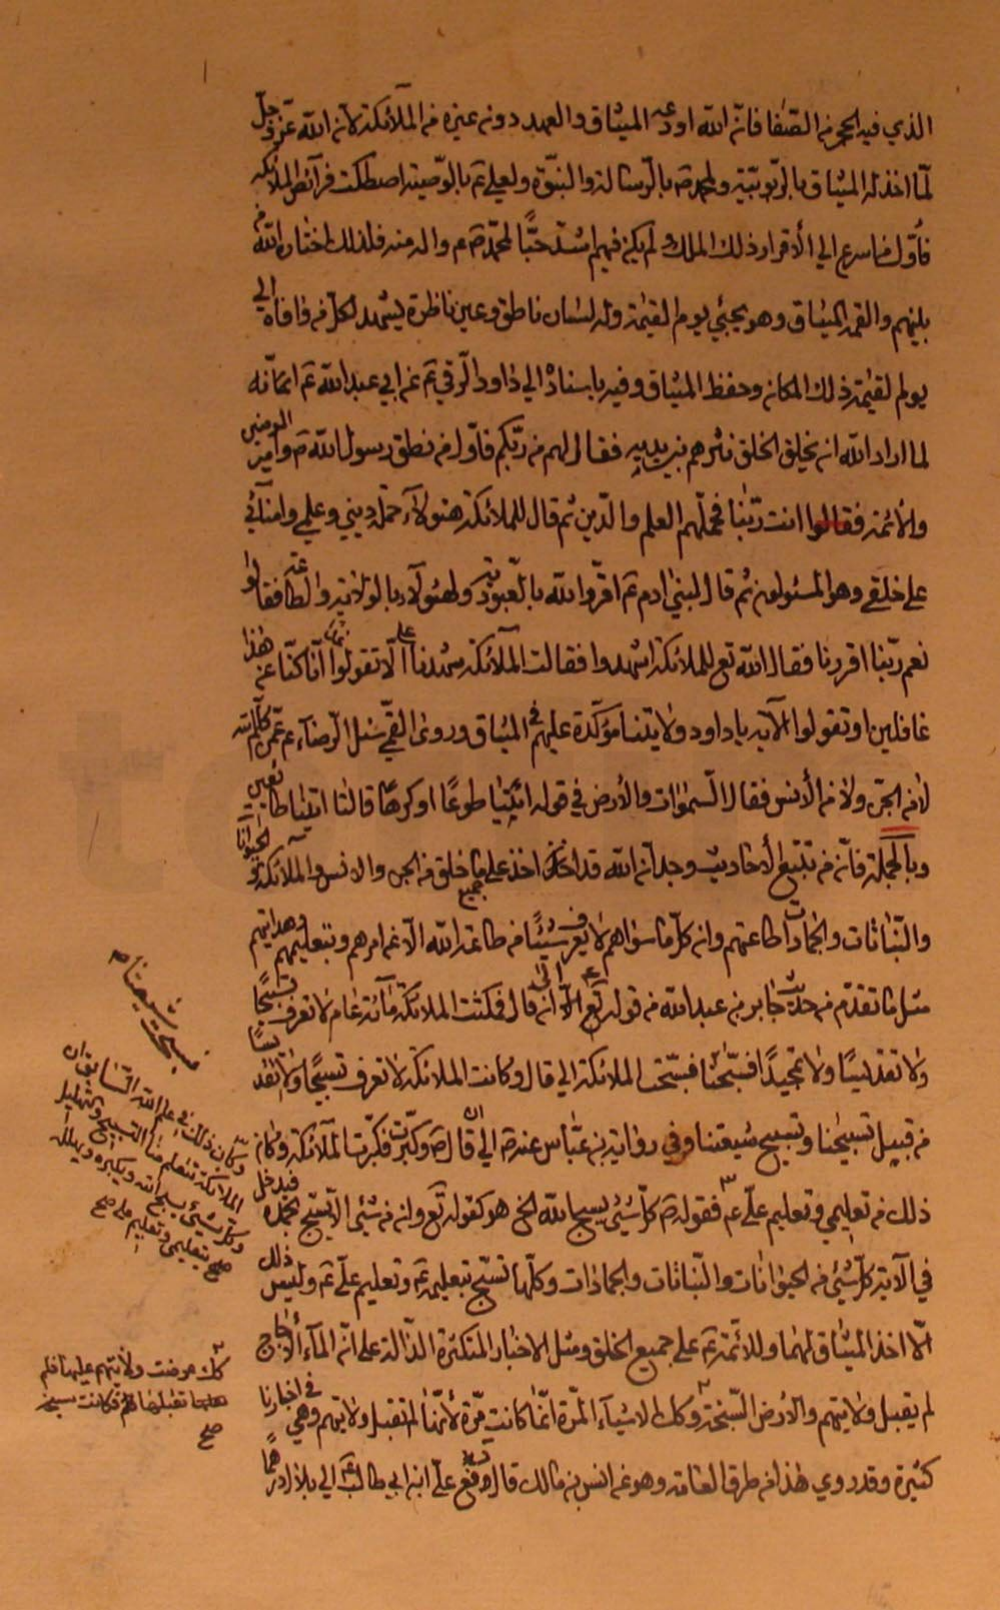 الذي فيه الحجر من الصّفا فانّ الله اودعه الميثاق والعهد دون غيره من الملآئكة لانّ الله عزّ وجلّ
لمّا اخذ له الميثاق بالرّبوبيّة ولمحمّد ص بالرّسالة والنبوّة ولعلي ع بالوصيّة اصطكت فرآئص الملائكة
فاوّل من اسرع الي الأقرار ذلك الملك ولم يكن فيهم اشدّ حبًّا لمحمّد ص وآله منه فلذلك اختاره الله من
بينهم والقمه الميثاق وهو يجيئي يوم القيٰمة وله لسان ناطق وعين ناظرة يشهد لكلّ من وافاه الي
يوم القيٰمة ذلك المكان وحفظ الميثاق وفيه باسناده الي داود الرّقي عن ابي عبد الله ع انّه
لما اراد الله ان يخلق الخلق نثرهم بين يديه فقال لهم من ربّكم فاوّل من نطق رسول الله ص وامير المؤمنين
والأئمة فقالوا انت ربّنا فحمّلهم العلم والدّين ثم قال للملآئكة هٰئولآء حملة ديني وعلمي وامنآئي
علي خلقي وهم المسئولون ثم قال لبني ادم ع اقرّوا لله بالعبوديّة ولهٰئولآء بالولاية والطاعة فقالوا
نعم ربّنا اقررنا فقال الله تع للملائكة اشهدوا فقالت الملآئكة شهدنا علي الّا تقولوا انّا كنّا عن هٰذا
غافلين او تقولوا الآية يا داود ولايتنا مؤكّدة عليهم في الميثاق وروى القمّي سئل الرّضا ع عمّن كلّم الله
لا من الجنّ ولا من الأنس فقال السّمٰوات والأرض في قوله ائتيا طوعًا او كرهًا قالتا اتينا طآئعين
وبالجملة فانّه من تتبّع الأحاديث وجد انّ الله قد اخذ علي جميع ما خلق من الجن والانس والملآئكة والحيوانات
والنّباتات والجمادات طاعتهم وان كلّ ما سواهم لا يعرف شيئًا من طاعة الله الّا عن امرهم وبتعليمهم وهدايتهم
مثل ما تقدّم من حديث جابر بن عبد الله من قوله ع الي ان قال فمكثت الملائكة مائة عام لا تعرف تسبيحًا
ولا تقديسًا ولا تمجيدًا فسبّحنا فسبّحت الملائكة الي قال وكانت الملائكة لا تعرف تسبيحًا ولا تقديسًا
من قبل تسبيحنا وتسبيح شيعتنا وفي رواية بن عبّاس عنه ص الي ان قال ص وكبّرت فكبّرت الملآئكة وكان
ذلك من تعليمي وتعليم علّي ع فقوله ص كلّ شيئ يسبح الله الخ هو كقوله تع وان من شيئ الّا يسبّح بحمده فيدخل
في الآية كلّ شيئ من الحيوانات والنّباتات والجمادات وكلّها تسبّح بتعليمه وتعليم علّي ع وليس ذلك
الّا اخذ الميثاق لهما وللائمّة ع علي جميع الخلق ومثل الاخبار المتكثرة الدّالة علي انّ المآء الأجاج
لم يقبل ولايتهم والأرض السّبخة وكك الاشيآء المرّة انّما كانت مرّة لأنّها لم تقبل ولايتهم وهي في اخبارنا
كثيرة وقد روي هٰذا من طرق العامة وهو عن انس بن مالك قال دفع علّي ابن ابي طالب ع الي بلال درهمًا
فسبّحت شيعتنا ص
وكان ذلك في علم الله السّابق ان
الملآئكة تتعلم منّا التسبيح والتهليل
وكل شيئ يسبح الله ويكبره ويهلّله
بتعليمي وتعليم علي صح
كك عرضت ولايتهم عليها فلم
تقبلها فكانت سبخة
صح